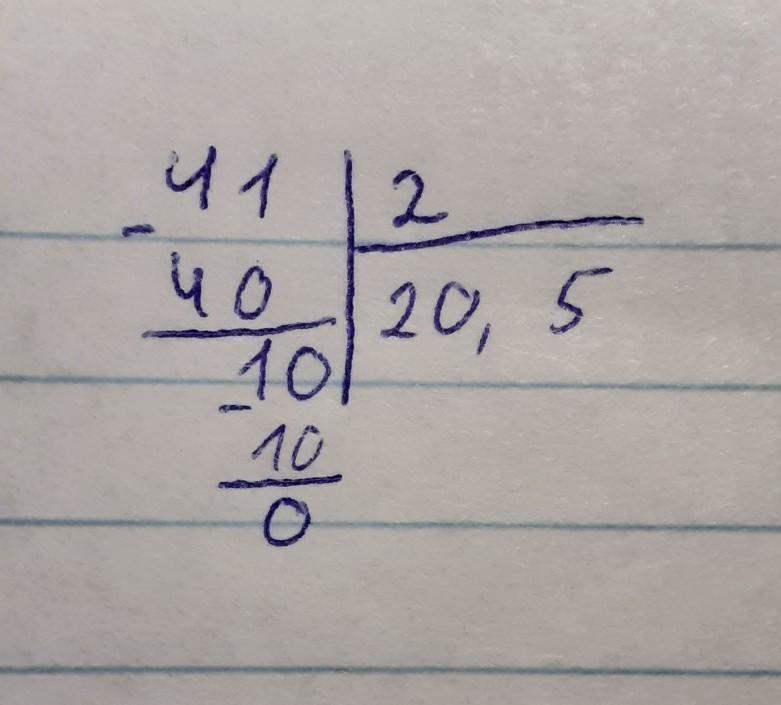 41 | 2
- 40 | 20, 5
- 10
10
0